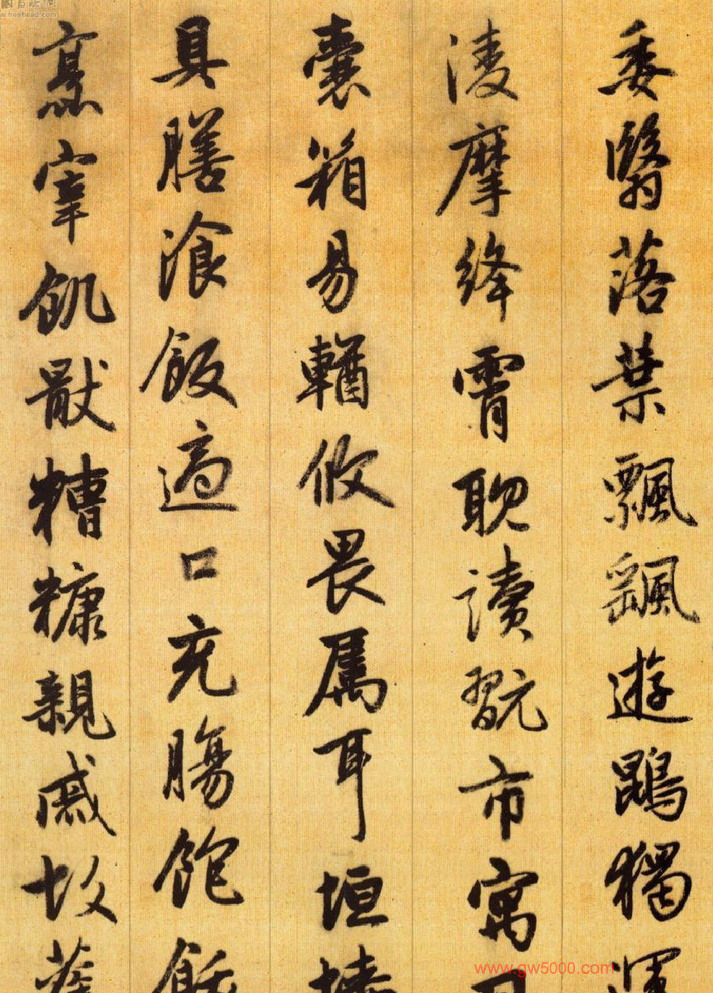 委翳落葉飄颻遊鵾獨運
淩摩絳霄耽讀翫市寓目
囊箱易輶攸畏属耳垣墻
具膳飡飯適口充腸飽飫
烹宰飢猒糟糠親戚故舊
www.gw5000.com